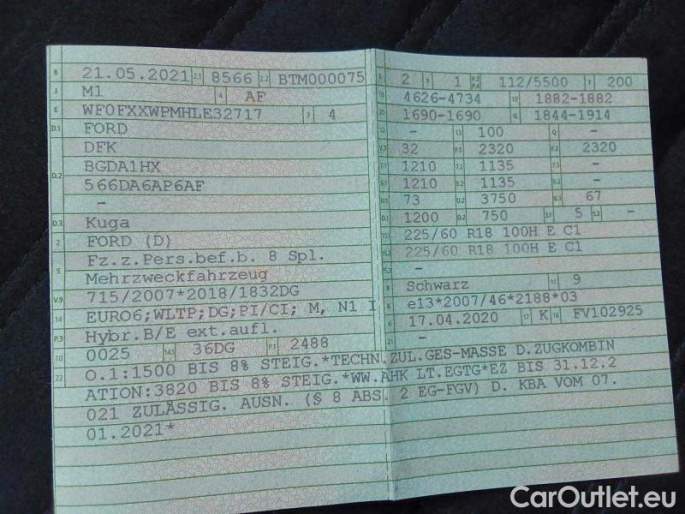 21.05.2021 8566 BTM000075
M1 AF
WF0FXXWPMHLE32717 4
FORD
DFK
BGDA1HX
566DA6AP6AF
–
Kuga
FORD (D)
Fz.z.Pers.bef.b. 8 Spl.
Mehrzweckfahrzeug
715/2007*2018/1832DG
EURO6;WLTP;DG;PI/CI; M, N1 I
Hybr.B/E ext.aufl.
0025 36DG 2488
2 1 112/5500 200
4626-4734 1882-1882
1690-1690 1844-1914
– 100 –
32 2320 2320
1210 1135 –
1210 1135 –
73 3750 67
1200 750 5 –
225/60 R18 100H E C1
225/60 R18 100H E C1
–
Schwarz 9
e13*2007/46*2188*03
17.04.2020 K FV102925
–
O.1:1500 BIS 8% STEIG.*TECHN.ZUL.GES-MASSE D.ZUGKOMBIN
ATION:3820 BIS 8% STEIG.*WW.AHK LT.EGTG*EZ BIS 31.12.2
021 ZULÄSSIG. AUSN. (§ 8 ABS. 2 EG-FGV) D. KBA VOM 07.
01.2021*
CarOutlet.eu